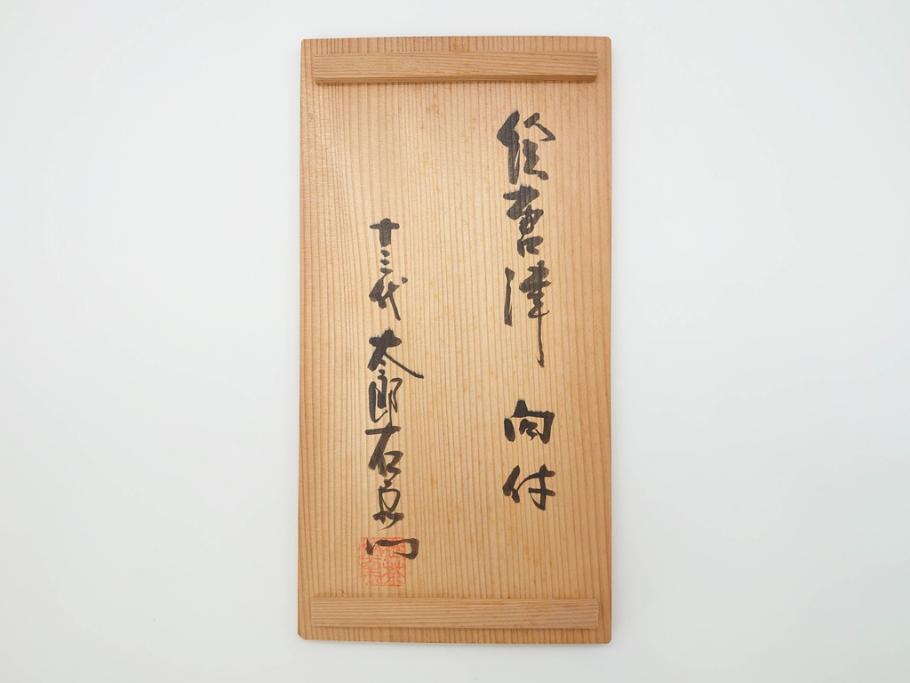 絵唐津 向付
十三代 太郎右衛門